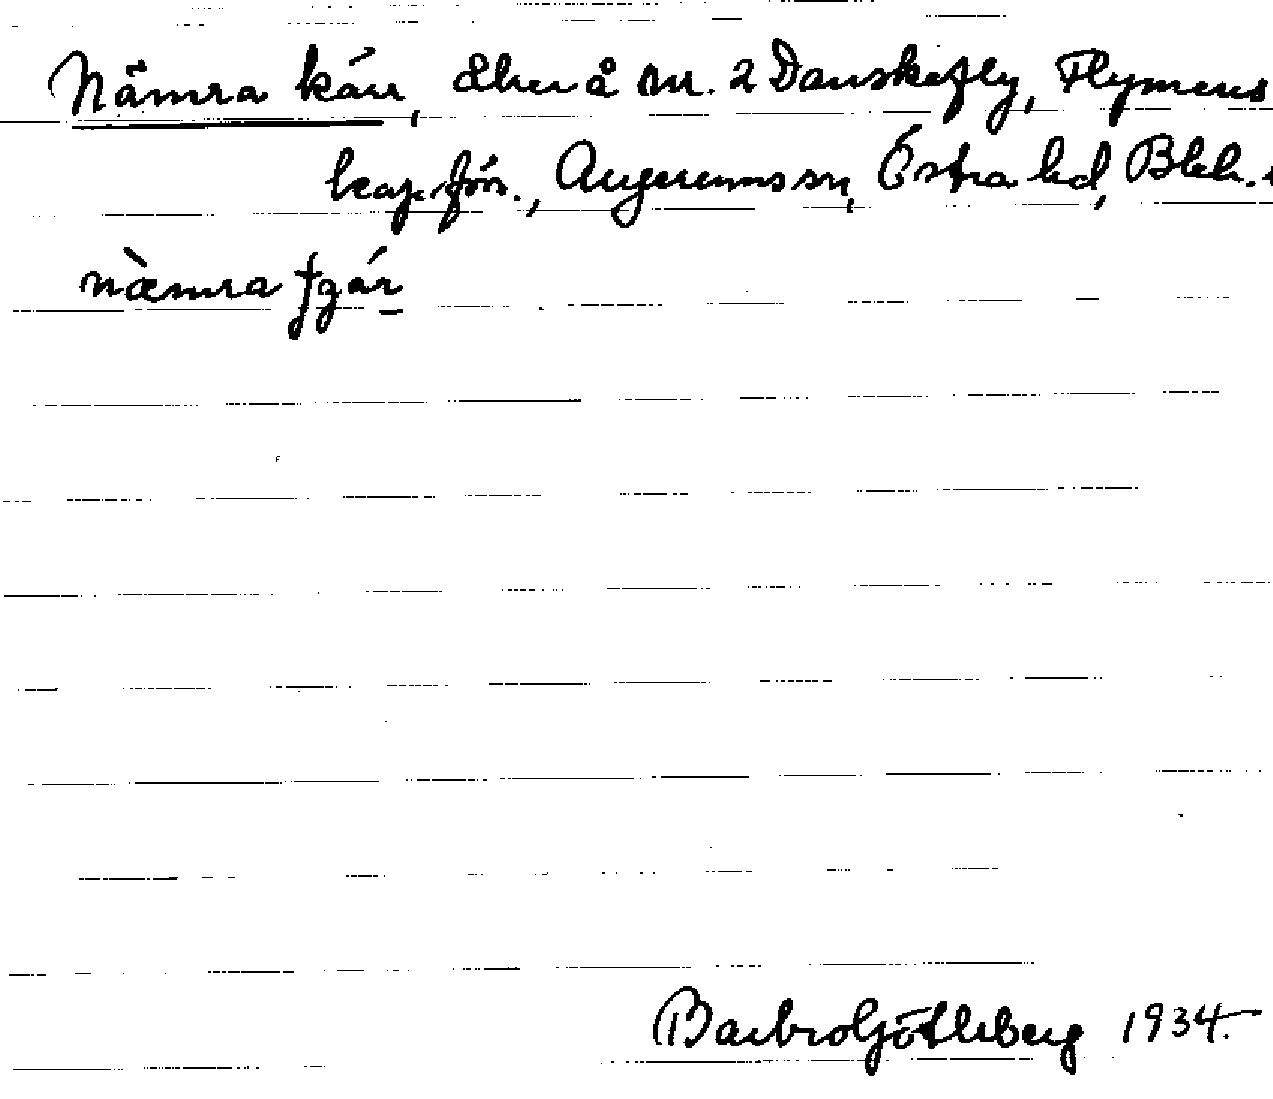 Nämra kärr, åker å nr. 2 Danskefly, Flymens
kap.förs., Augerums sn, Östra hd, Blek.
næmra
Barbro Götlberg 1934.